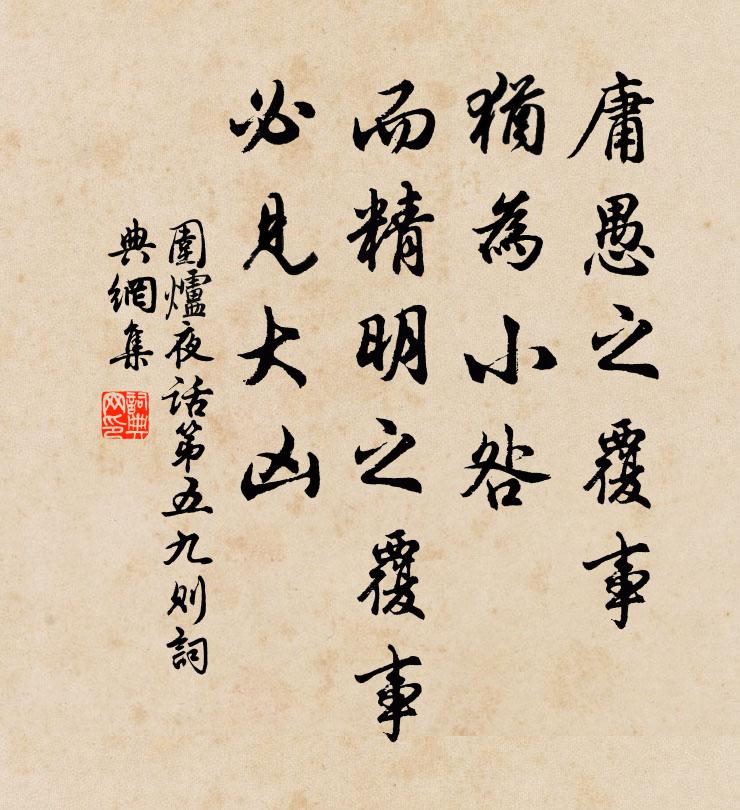 庸愚之覆事
猶為小咎
而精明之覆事
必見大凶
圍爐夜话第五九则詞
典網集
詞典
网印